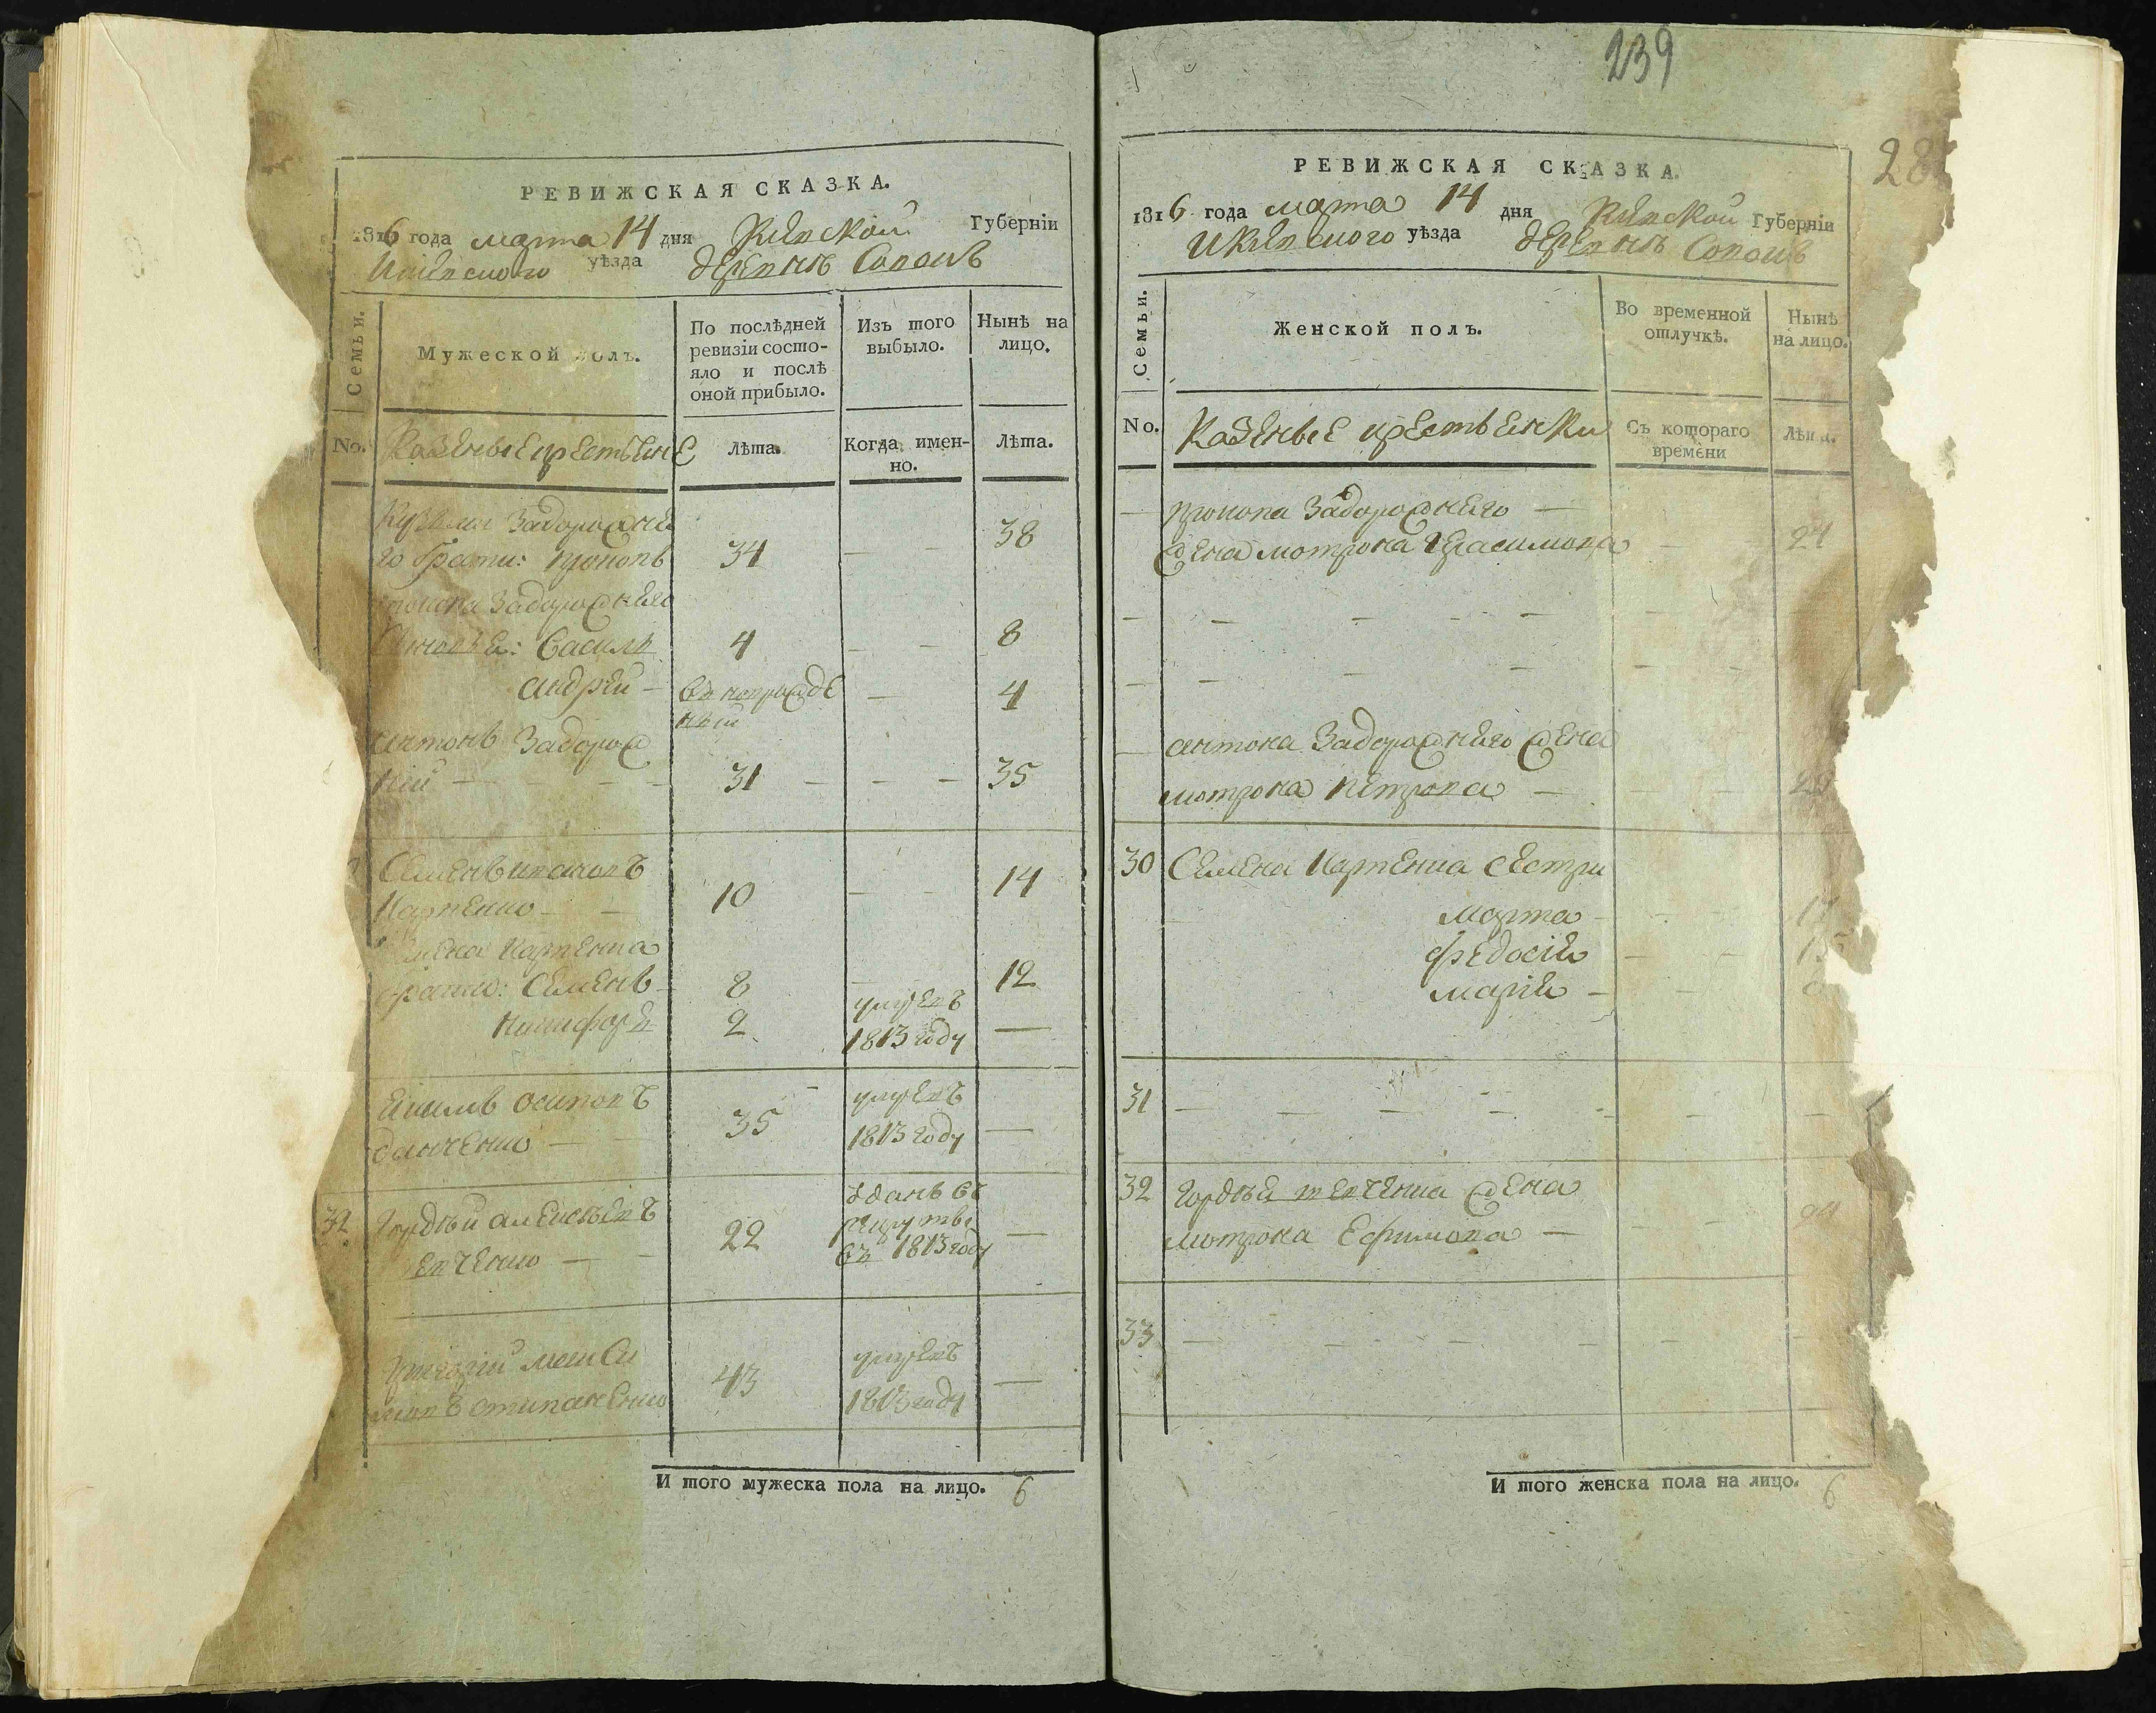 239
РЕВИЖСКАЯ СКАЗКА.
1816 года марта 14 дня Киевской Губерніи
Киевского уѣзда деревнѣ Совокъ
Семьи.
Мужеской полъ.
По послѣдней ревизіи состо-
яло и послѣ
оной прибыло.
Изъ того
выбыло.
Нынѣ на
лицо.
No.
Казеные крестьяне
лѣта.
Когда имен-
но.
Лѣта.
Задорожне
го братъ: Прокопъ 34 — — 38
Прокопа Задорожнего
Сыновья: Василь 4 — — 8
Андрей — въ нерожде — 4
ный
Антонъ Задорож
ній — — — 31 — — — 35
Семенъ
10 — — 14
братья: Семенъ 8 — 12
Никифоръ 2 умръ въ
1813 году —
Якимъ Осиповъ 35 умръ въ
Данченко — 1813 году —
32 Гордѣй Алексѣевъ 22 зданъ въ
рекрутъ
въ 1813 году —
— —
Григорій Макси
мовъ Степаненко 43 умръ въ
1813 году —
И того мужеска пола на лицо. 6
РЕВИЖСКАЯ СКАЗКА.
28
1816 года марта 14 дня Киевской Губерніи
Киевского уѣзда деревнѣ Совокъ
Семьи.
Женской полъ.
Во временной
отлучкѣ.
Нынѣ
на лицо.
No.
Казеные крестьянки
Съ котораго
времени
Лѣта.
— Прокопа Задорожнего —
жена Мотрона Герасимова — 24
— — — — — —
— — — — —
— Антона Задорожнего жена
Мотрона Петрова — — —
30 Семена сестри
Марта —
Федосія — —
Марія — —
31 — — — — — — —
32 Гордѣя жена
Мотрона Ефимова —
33 — — — — —
И того женска пола на лицо. 6